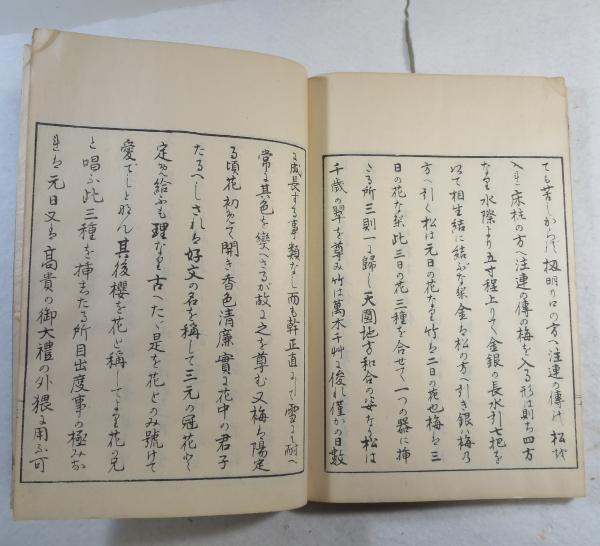 ても苦しからす扨明り口の方へ注連の傳の松を
入れ床柱の方へ注連の傳の梅を入る形は則ち四方
なり水際より五寸程上りてく金銀の長水引七把を
以て相生結に結ふなり尤金を松の方へ引き銀は梅の
方へ引く松は元日の花なり竹は二日の花也梅は三
日の花なり此三日の花三種を合せて一つの器に挿
さる所三則一に歸し天圓地方和合の姿なり松は
千歳の翠を尊み竹は萬木千艸に俊れ僅かの日數
に成長する事類なし而も幹正直にして雪にも耐へ
常に其色を變へさるが故に之を尊む又梅は陽定
る頃花初めて開き香色清廉實に花中の君子
たるへしされは好文の名を稱して三元の冠花と
定め給ふも理なり古へたゝ是を花とのみ號けて
愛でしとなん其後櫻を花と稱してより花の兄
と唱ふ此三種を挿したる所目出度事の極みな
れは元日又は高貴の御大禮の外猥に用ふ可